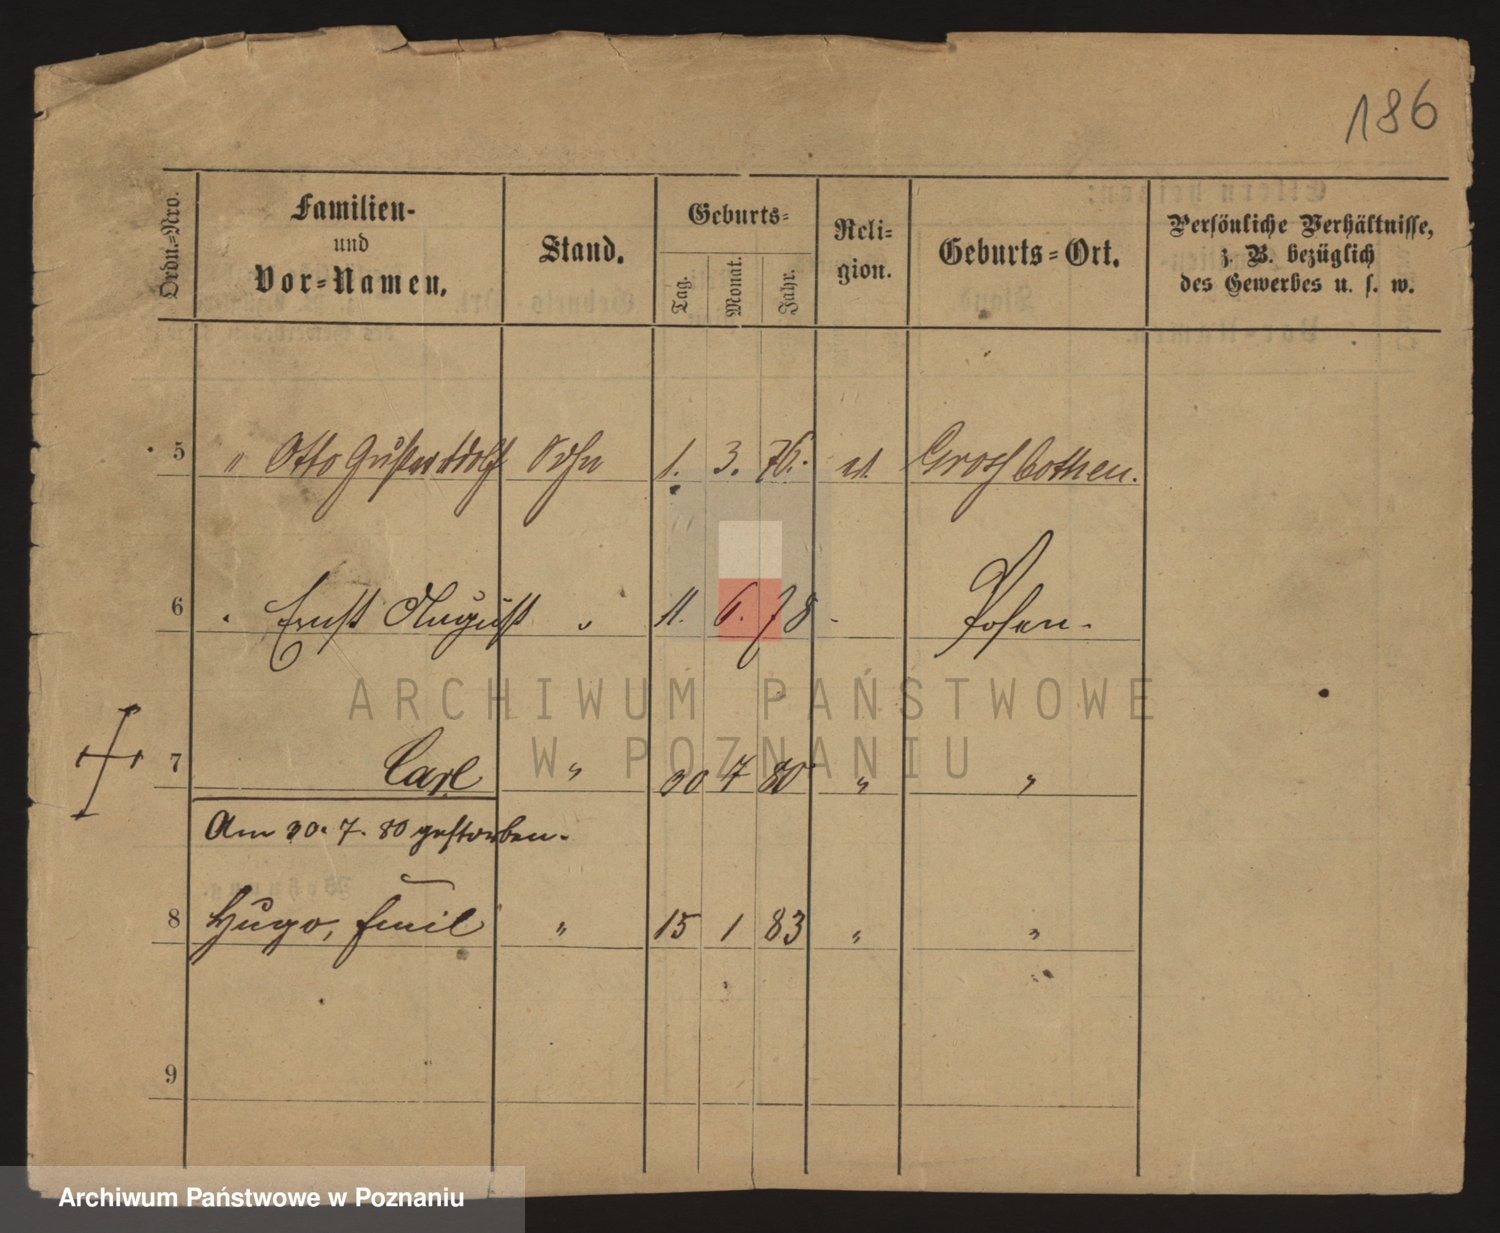 186
Ordn.-Nro.
Familien-
und
Vor-Namen.
Stand.
Geburts-
Tag.
Monat.
Jahr.
Reli-
gion.
Geburts-Ort.
Persönliche Verhältnisse,
z. B. bezüglich
des Gewerbes u. s. w.
5 " Otto Gustav Adolf Sohn 1. 3. 76. ev. Gross Bothen.
6 " Ernst August " 11. 6. 78 - Posen.
7 Carl " 30 7 80 " "
Am 30. 7. 80 gestorben.
8 Hugo, Emil " 15 1 83 " "
9
ARCHIWUM PAŃSTWOWE
W POZNANIU
Archiwum Państwowe w Poznaniu